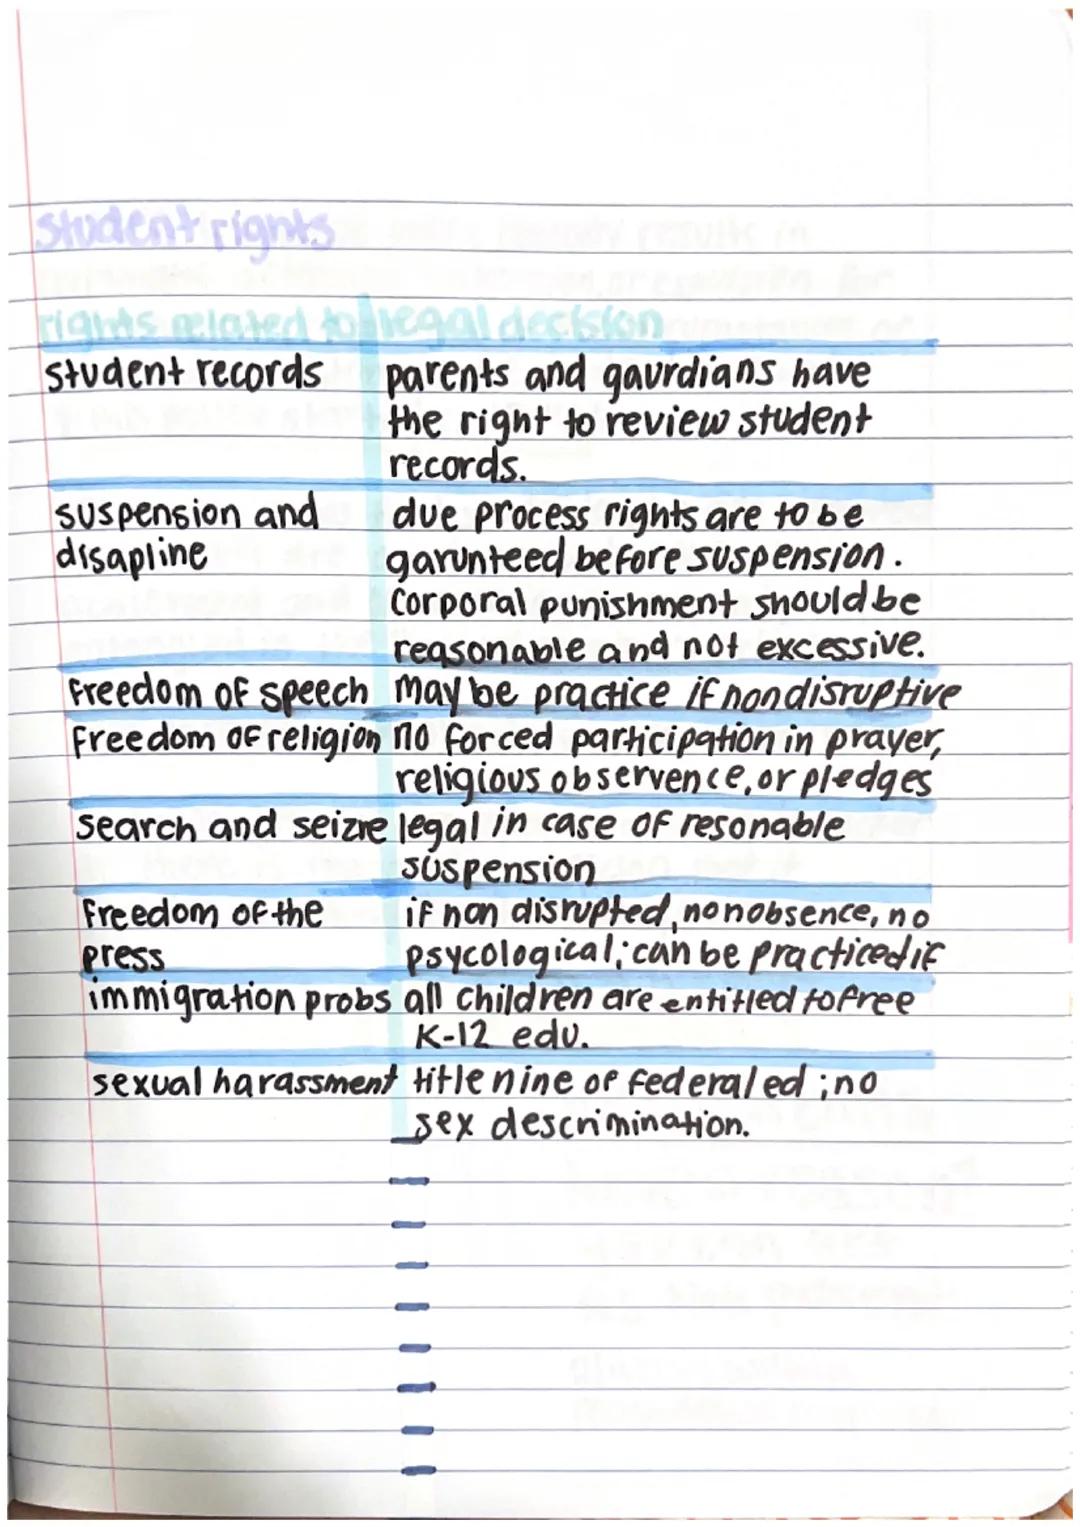 student rights
rights related to legal decision
student records parents and gaurdians have
the right to review student
records.
suspension and due process rights are to be
disapline garunteed before suspension.
Corporal punishment should be
reasonable and not excessive.
freedom of speech may be practice if nondisruptive
freedom of religion no forced participation in prayer,
religious observence, or pledges
search and seizre legal in case of resonable
suspension
freedom of the if non disrupted, no nobsence, no
press psycological; can be practiced if
immigration probs all children are entitled to free
K-12 edu.
sexual harassment title nine of federal ed; no
sex descrimination.